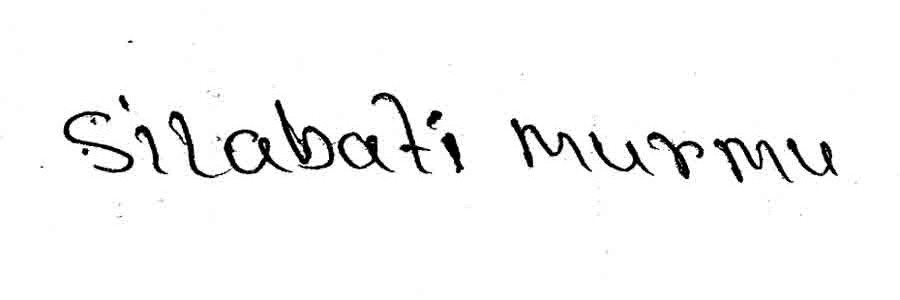 Silabati murmu